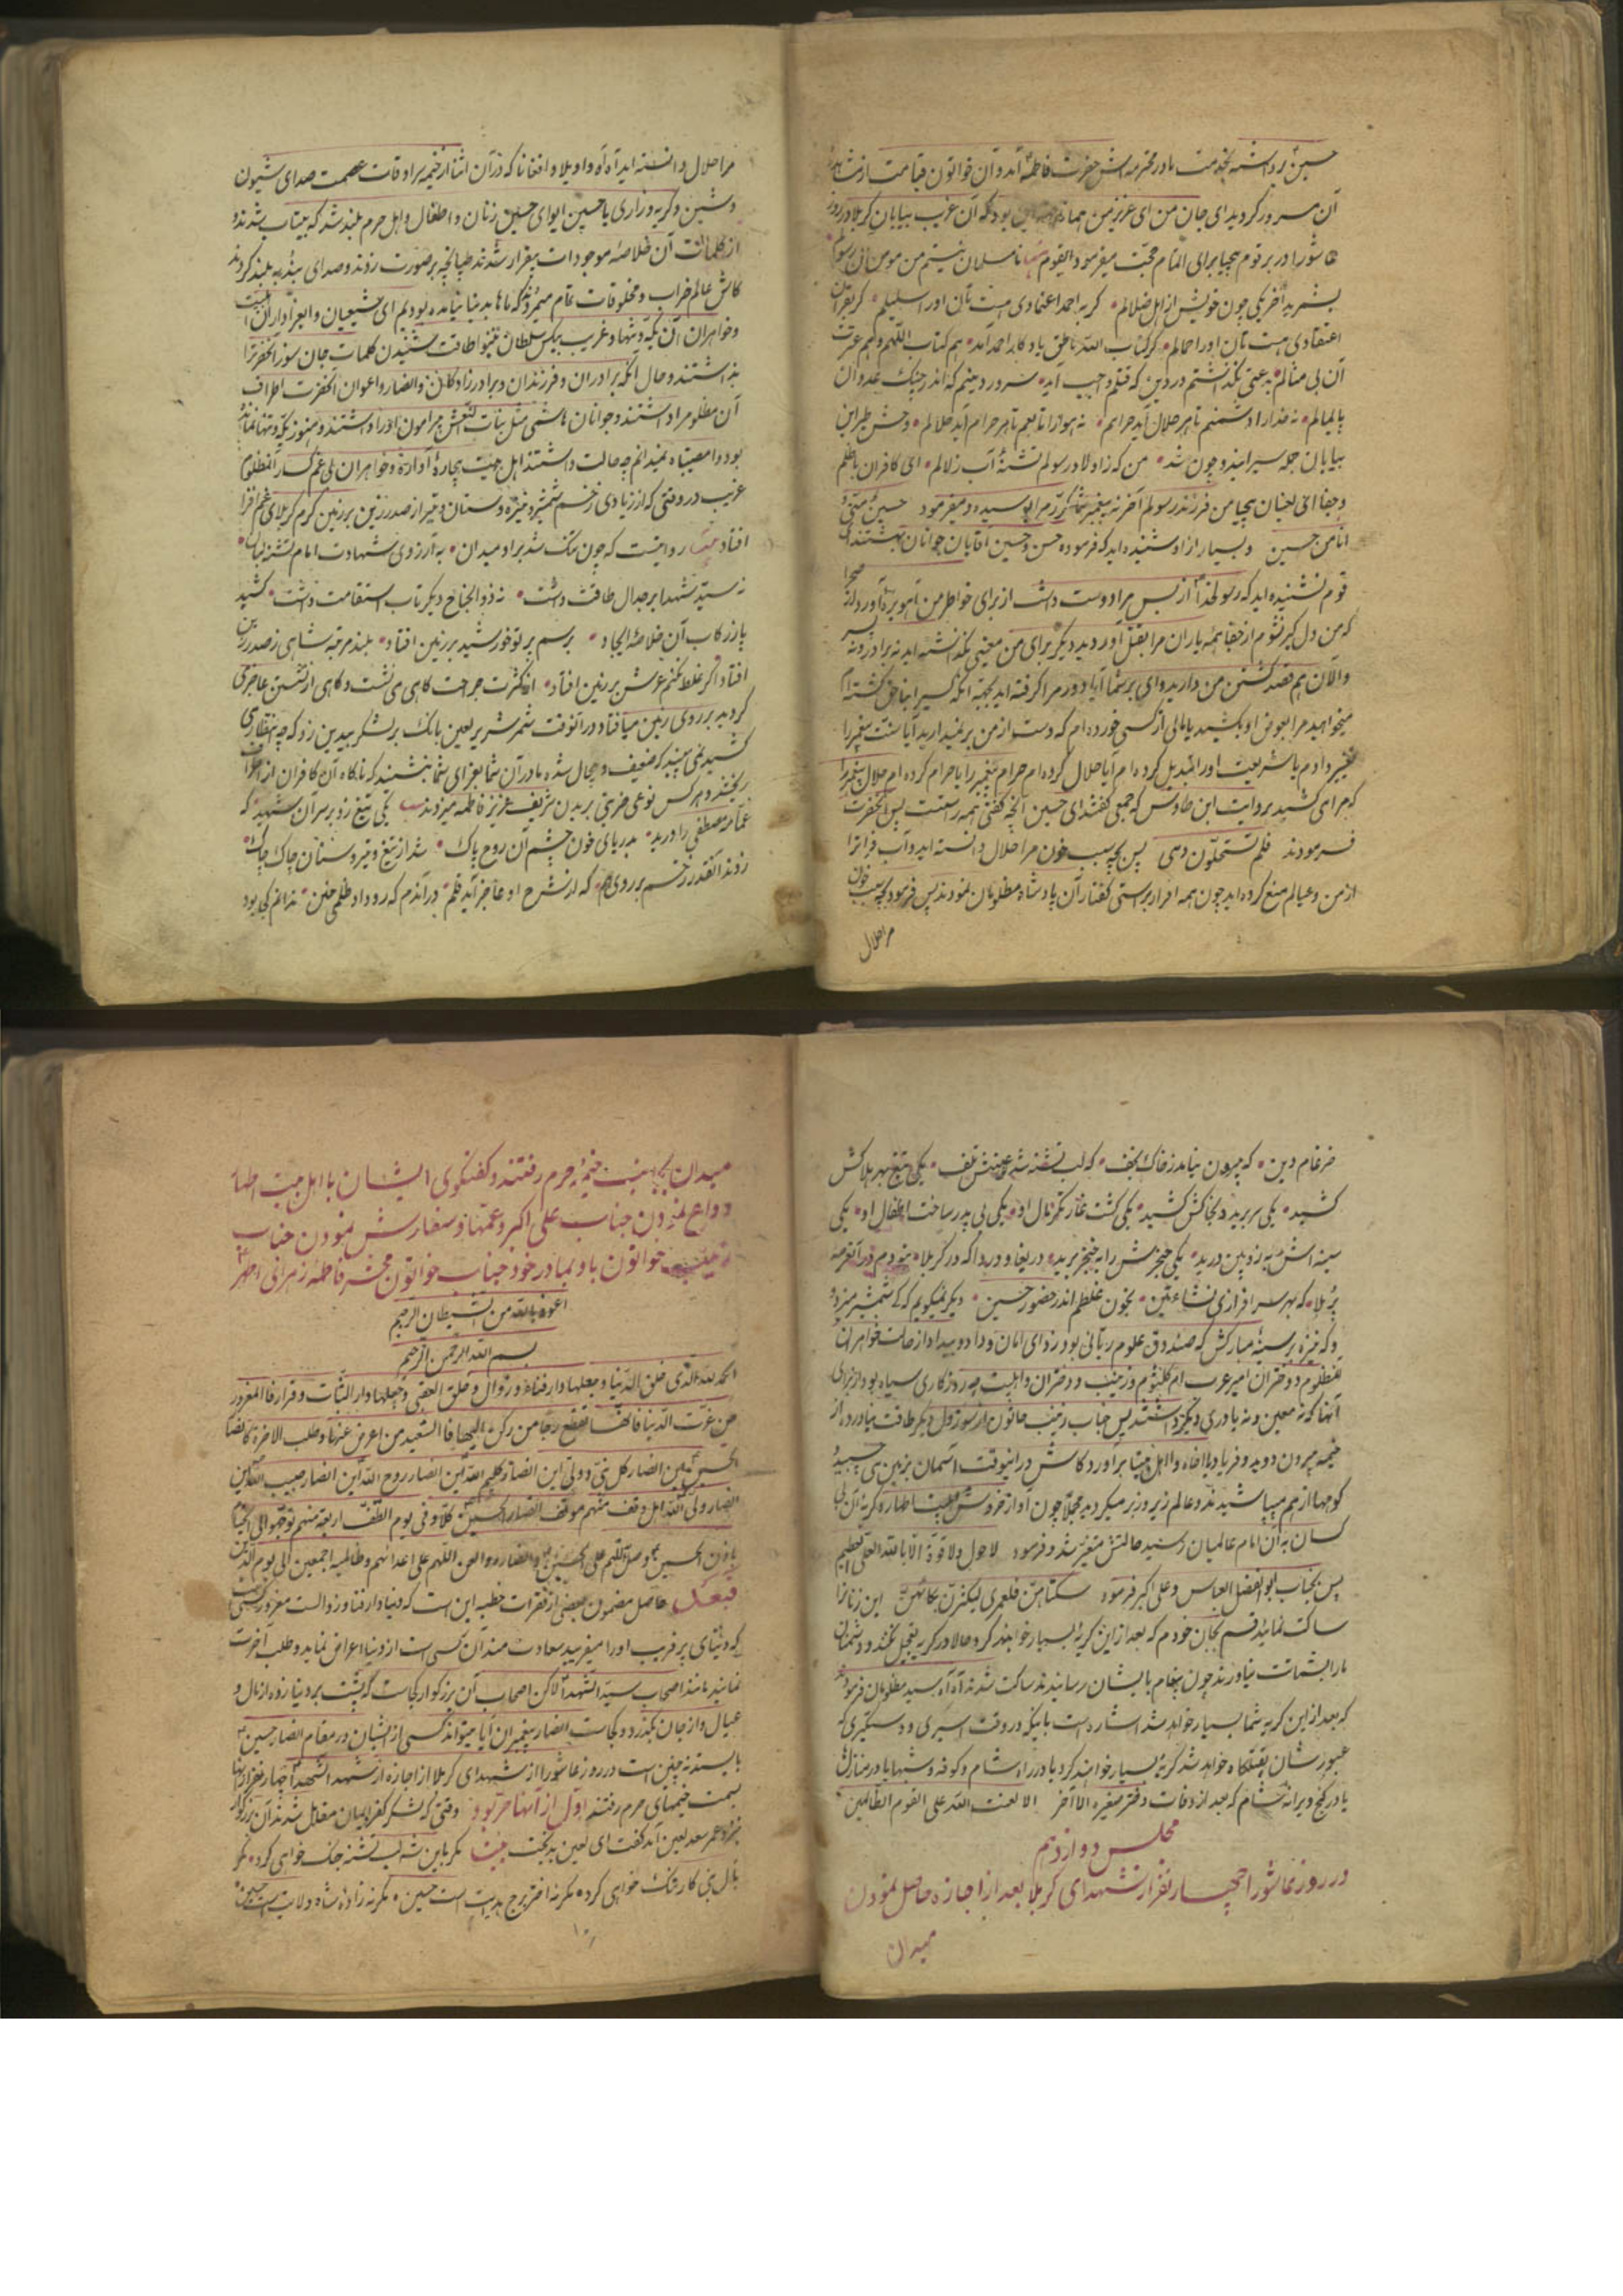 حسین برداشته بخدمت مادر محترمه اش حضرت فاطمه آمد و آن خواتون قیامت
آن سرور کردید ای جان من ای عزیز من بود که آن غریب بیابان کربلا در روز
عاشورا در بر قوم بیحیا برای اتمام حجت میفرمود القوم نامسلمان نیستم من مومن آن رسول
بشمرید آخر یکی چون خویش از اهل ضلالم گر به احمد اعتمادی هست تان او را سلیلم گر بقرآن
اعتقادی هست تان او را همالم گر کتاب الله ناطق یادگار احمد آمد هم کتاب اللهم و هم عترت
آن بی مثالم بدعتی نگذاشتم در دین که قتلم واجب آید
پایمالم نه خدا را دشمنم تا هر حلال آید حرامم نه هوا را تابعم تا هر حرام آید حلالم وحش و طیر این
بیابان جمله سیرابند و چون شد من که زاولاد رسولم تشنه آب زلالم ای کافران با ظلم
و جفا ای لعینان بیحیا من فرزند رسولم آخر نه پیغمبر شما مکرر مرا بوسیده و میفرمود حسین منی و
انا من حسین و بسیار از او شنیده اید که فرموده حسن و حسین آقایان جوانان بهشتند ای
قوم نشنیده اید که رسولخدا از بس مرا دوست داشت از برای خواطر من آهو بره آورد از صحرا
که من دل گیر نشوم از جفا همه یاران مرا بقتل آوردید دیگر برای من معینی نگذاشته اید نه برادر و نه پسر
والآن هم قصد کشتن من دارید وای بر شما آیا دور مرا گرفته اید بجهة آنکه کسیرا بناحق کشته ام
میخواهید مرا بعوض او بکشید یا مالی از کسی خورده ام که دست از من بر نمیدارید آیا سنت پیغمبر را
تغییر دادم یا شریعت او را تبدیل کرده ام آیا حلال کرده ام حرام پیغمبر را یا حرام کرده ام حلال پیغمبر را
که مرا میکشید بروایت ابن طاوس که جمعی گفتند ای حسین آنچه گفتی همه راست است پس آنحضرت
فرمودند فلم تستحلون دمی پس بچه سبب خون مرا حلال دانسته اید و آب فرات را
از من و عیالم منع کرده اید چون همه اقرار براستی گفتار آن پادشاه مظلومان نمودند پس فرمود بچه سبب خون
مرا حلال
مرا حلال دانسته اید آه آه واویلا و افغانا که در آن اثنا از خیمه سراوقات عصمت صدای شیون
و شین و گریه و زاری یا حسین ایوای حسین زنان و اطفال و اهل حرم بلند شد که بیتاب شدند و
از کلمات آن خلاصه موجودات بیقرار شدند طپانچه بر صورت زدند و صدای ندبه بلند کردند
کاش عالم خراب و مخلوقات تمام میمردند که ماها بدنیا نیامده بودیم ای شیعیان و ایعزاداران اهلبیت
و خواهران آن یکه و تنها و غریب بیکس سلطان نینوا طاقت شنیدن کلمات جان سوز آنحضرت را
نداشتند و حال آنکه برادران و فرزندان و برادرزادگان و انصار و اعوان آنحضرت اطراف
آن مظلوم را داشتند و جوانان هاشمی مثل بنات النعش پیرامون او را داشتند و هنوز یکه و تنها نمانده
بود وا مصیبتاه نمیدانم چه حالت داشتند اهل بیت بیچاره آواره و خواهران بی غمگسار آنمظلوم
غریب در وقتی که از زیادی زخم شمشیر و نیزه و سنان و تیر از صدر زین بر زمین گرم کربلای غم افزا
افتاد روایتست که چون تنگ شد بر او میدان به آرزوی شهادت امام تشنه لبان
نه سید شهدا بر جدال طاقت داشت نه ذوالجناح دیگر تاب استقامت داشت کشید
پا ز رکاب آن خلاصه ایجاد برسم پرتو خورشید بر زمین افتاد بلند مرتبه شاهی ز صدر زین
افتاد اگر غلط نکنم عرش بر زمین افتاد از کثرت جراحت گاهی می نشست و گاهی از نشستن عاجز می
گردید بر روی زمین میافتاد در آنوقت شمر شریر لعین بانگ بر لشکر بیدین زد که چه انتظاری
کشید نمی بینید که ضعیف و بیحال شده مادرتان شما بعزای شما بنشیند که ناگاه آن کافران از اطراف
ریختند و هر کس نوعی ضربتی بر بدن شریف عزیز فاطمه میزدند یکی تیغ زد بر سر آن شهید که
عمامه مصطفی را درید بدریای خون جسم آن روح پاک شد از تیغ و تیر و سنان چاک چاک
زدند آنقدر زخم بر روی هم که از شرح او عاجز آید قلم در آندم که رو داد ظلمی چنین ندانم کجا بود
ضرغام دین که بیرون نیامد ز خاک نجف که لب تشنه شد عترتش تلف یکی تیغ بهر هلاکش
کشید یکی سر برید و بخاکش کشید یکی گشت غارتگر مال او یکی بی پدر ساخت اطفال او یکی
سینه اش به زوبین درید یکی حنجرش را به خنجر برید دریغا و دردا که در کربلا نبودم در آنعرصه
پر بلا که بهر سرافرازی نشاءتین بخون غلطم اندر حضور حسین دیگر نمیگویم که کی شمشیر میزد و
و که نیزه بر سینه مبارکش که صندوق علوم ربانی بود زد ای امان و داد و بیداد از حالت خواهران
آنمظلوم و دختران امیر عرب ام کلثوم و زینب و دختران و اهلبیت چه روزگاری سیاه بود از برای
آنها که نه معین و نه یاوری دیگر داشتند پس جناب زینب خاتون از سوز دل دیگر طاقت نیاورده از
خیمه بیرون دوید و فریاد یا اخاه وا اهل بیتا برآورد کاش در اینوقت آسمان بزمین می چسبید
کوهها از هم میپاشیدند و عالم زیر و زبر میگردید مجملا چون آواز خروش اهلبیت اطهار و گریه آن بی
کسان به آن امام عالمیان رسید حالتش متغیر شد و فرمود لا حول ولا قوة الا بالله العلی العظیم
پس بجناب ابوالفضل العباس و علی اکبر فرمود سکتاهن فلعمری لیکثرن بکائهن این زنان را
ساکت نمائید قسم بجان خودم که بعد از این گریه بسیار خواهند کرد و حالا در گریه تعجیل نکنند و دشمنان
ما را بشماتت نیاورند چون پیغام بایشان رسانیدند ساکت شدند آه آه سید مظلومان فرمودند
که بعد از این گریه شما بسیار خواهد شد اشاره است باینکه در وقت اسیری و دستگیری که
عبورشان بقتلگاه خواهد شد گریه بسیار خواهند کرد یا در راه شام و کوفه و شبها یا در منازلها
یا در کنج ویرانه شام که بعد از وفات دختر صغیره الی آخر الا لعنت الله علی القوم الظالمین
مجلس دوازدهم
در روز عاشورا چهار نفر از شهدای کربلا بعد از اجازه حاصل نمودن
میدان
میدان بجانب خیمه حرم رفتند و گفتگوی ایشان با اهل بیت اطهار
وداع نمودن جناب علی اکبر و عمه‌ها و سفارش نمودن جناب
زینب خواتون باو بمادر خود جناب خواتون محشر فاطمه زهرای اطهر
اعوذ بالله من الشیطان الرجیم
بسم الله الرحمن الرحیم
الحمد لله الذی خلق الدنیا و جعلها دار فناء و زوال و خلق العقبی و جعلها دار الثبات و قرار فالمغرور
من غرت الدنیا من رکن الیها فالسعید من اعرض عنها و طلب الاخرة کانصار
الحسین این انصار کل نبی و ولی این انصار کلیم الله این انصار روح الله این انصار حبیب الله این
انصار ولی الله هل وقف منهم موقف انصار الحسین کلا و فی یوم الطف اربعة منهم توجهوا الی الخیام
باذن الحسین وصل اللهم علی الحسین و انصاره و العن اللهم علی اعدائهم و ظالمیهم اجمعین الی یوم الدین
فبعد حاصل مضمون بعضی از فقرات خطبه این است که دنیا دار فنا و زوالست مغرور کسی است
که دنیای پر فریب او را میفریبد سعادت مند آن کسی است از دنیا اعراض نماید و طلب آخرت
نماید مانند اصحاب سید الشهدا لاکن اصحاب آن بزرگوار کجاست که پشت بر دنیا زده از مال و
عیال و از جان بگذرد و کجاست انصار پیغمبران آیا میتواند کسی از ایشان در مقام انصار حسین
بایستد نه چنین است در روز عاشورا از شهدای کربلا از اجازه از سید الشهدا چهار نفر از آنها
بسمت خیمهای حرم رفتند اول از آنها حر بود وقتی که لشکر کفر و ایمان مقابل شدند آن بزرگوار
نزد عمر سعد لعین آمد گفت ای لعین بدبخت بیت مگر باین شه لب تشنه جنگ خواهی کرد مگر
بآل نبی کار تنگ خواهی کرد مگر نه اختر برج هدایت است حسین مگر نه زاده شاه ولایت است حسین